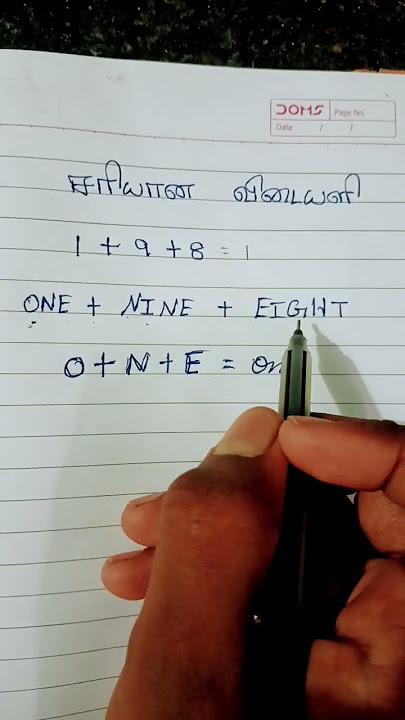 DOMS Page No.
Date / /
சரியான விடையளி
1 + 9 + 8 = 1
ONE + NINE + EIGHT
O + N + E = On